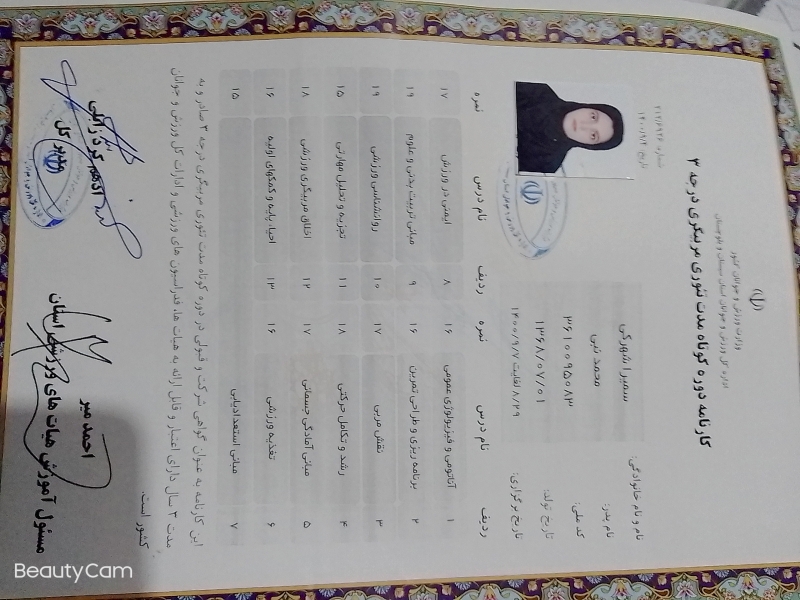 وزارت ورزش و جوانان کشور
اداره کل ورزش و جوانان استان سیستان و بلوچستان
کارنامه دوره کوتاه مدت تئوری مربیگری درجه ۳
شماره
تاریخ
نام و نام خانوادگی: سمیرا شهرکی
نام پدر: محمد نبی
کد ملی: ۳۶۱۰۰۹۵۰۸۳
تاریخ تولد: ۱۳۶۸/۰۷/۰۱
تاریخ برگزاری: ۸/۲۹ لغایت ۱۴۰۰/۹/۷
ردیف نام درس نمره ردیف نام درس نمره
۱ آناتومی و فیزیولوژی عمومی ۱۶ ۸ ایمنی در ورزش ۱۷
۲ برنامه ریزی و طراحی تمرین ۱۶ ۹ مبانی تربیت بدنی و علوم ۱۹
۳ نقش مربی ۱۷ ۱۰ روانشناسی ورزشی ۱۹
۴ رشد و تکامل حرکتی ۱۸ ۱۱ تجزیه و تحلیل مهارتی ۱۵
۵ مبانی آمادگی جسمانی ۱۷ ۱۲ اخلاق مربیگری ورزشی ۱۸
۶ تغذیه ورزشی ۱۶ ۱۳ احیا، پایه و کمکهای اولیه ۱۶
۷ مبانی استعدادیابی ۱۵
این کارنامه به عنوان گواهی شرکت و قبولی در دوره کوتاه مدت تئوری مربیگری درجه ۳ صادر و به
مدت ۳ سال دارای اعتبار و قابل ارائه به هیات ها، فدراسیون های ورزشی و ادارات کل ورزش و جوانان
کشور است.
احمد میر
مسئول آموزش هیات های ورزشی استان
مدیر کل
BeautyCam